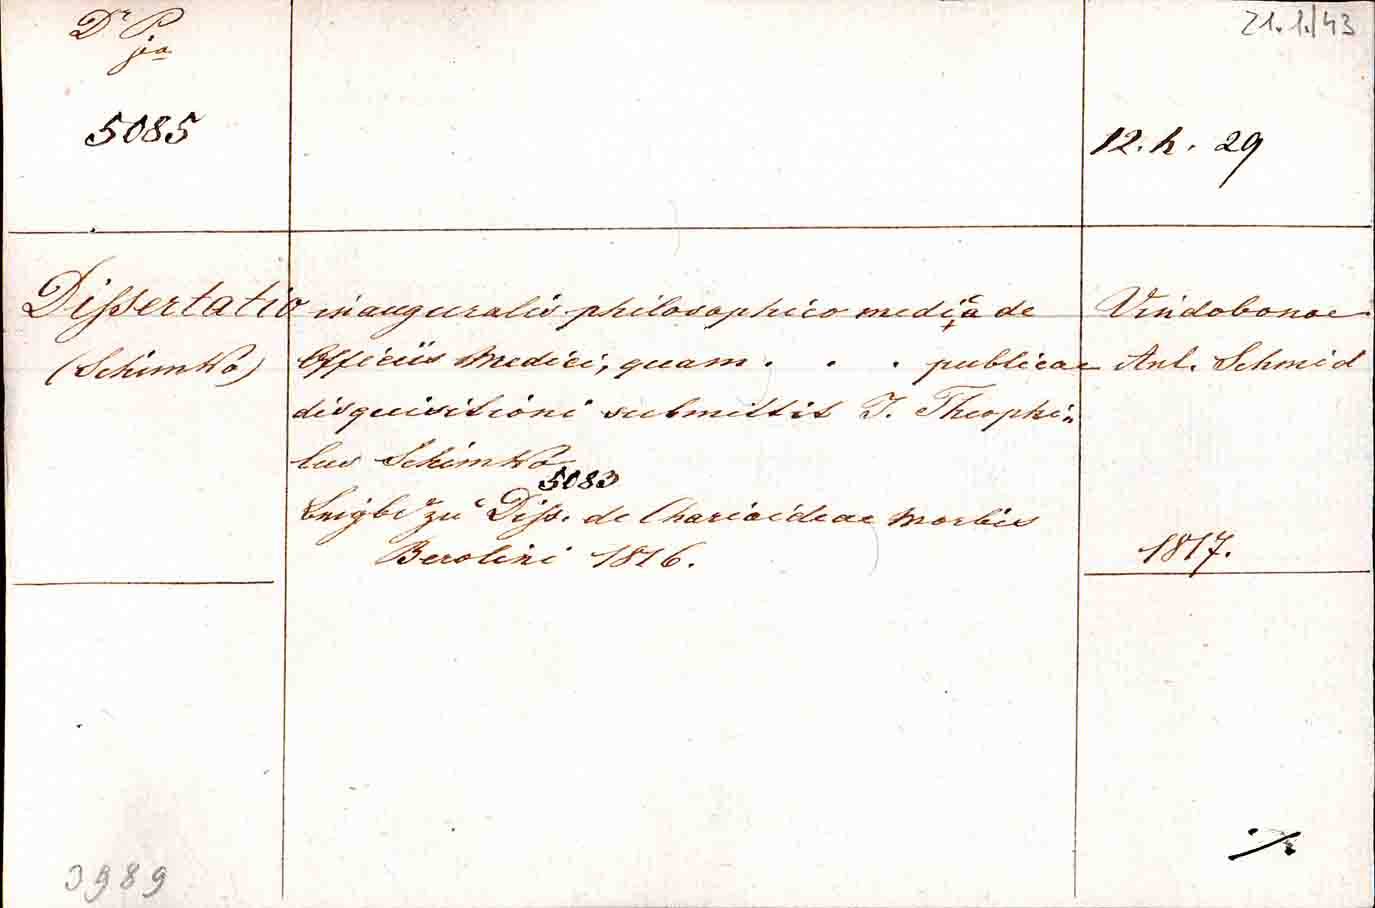 Dr P
jca
21.1./43
5085
12. h. 29
Dissertatio inauguralis philosophico medica de Vindobonae
(Schimko) Officiis Medici, quam . . . publicae Ant. Schmid
disquisitioni submittit J. Theophi-
lus Schimko
5083
beigb. zu Diss. de Charioideae morbis
Berolini 1816.
1817.
3989